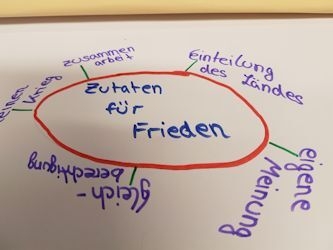 Zutaten
für
Frieden
zusammen
arbeit
Einteilung
des Landes
eigene
Meinung
gleich-
berechtigung
Krieg